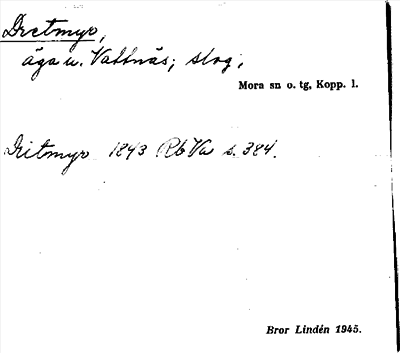 Dretmyr,
äga u. Vattnäs; skog;
Mora sn o. tg, Kopp. l.
Dritmyr 1843 Rb Va s. 384.
Bror Lindén 1945.